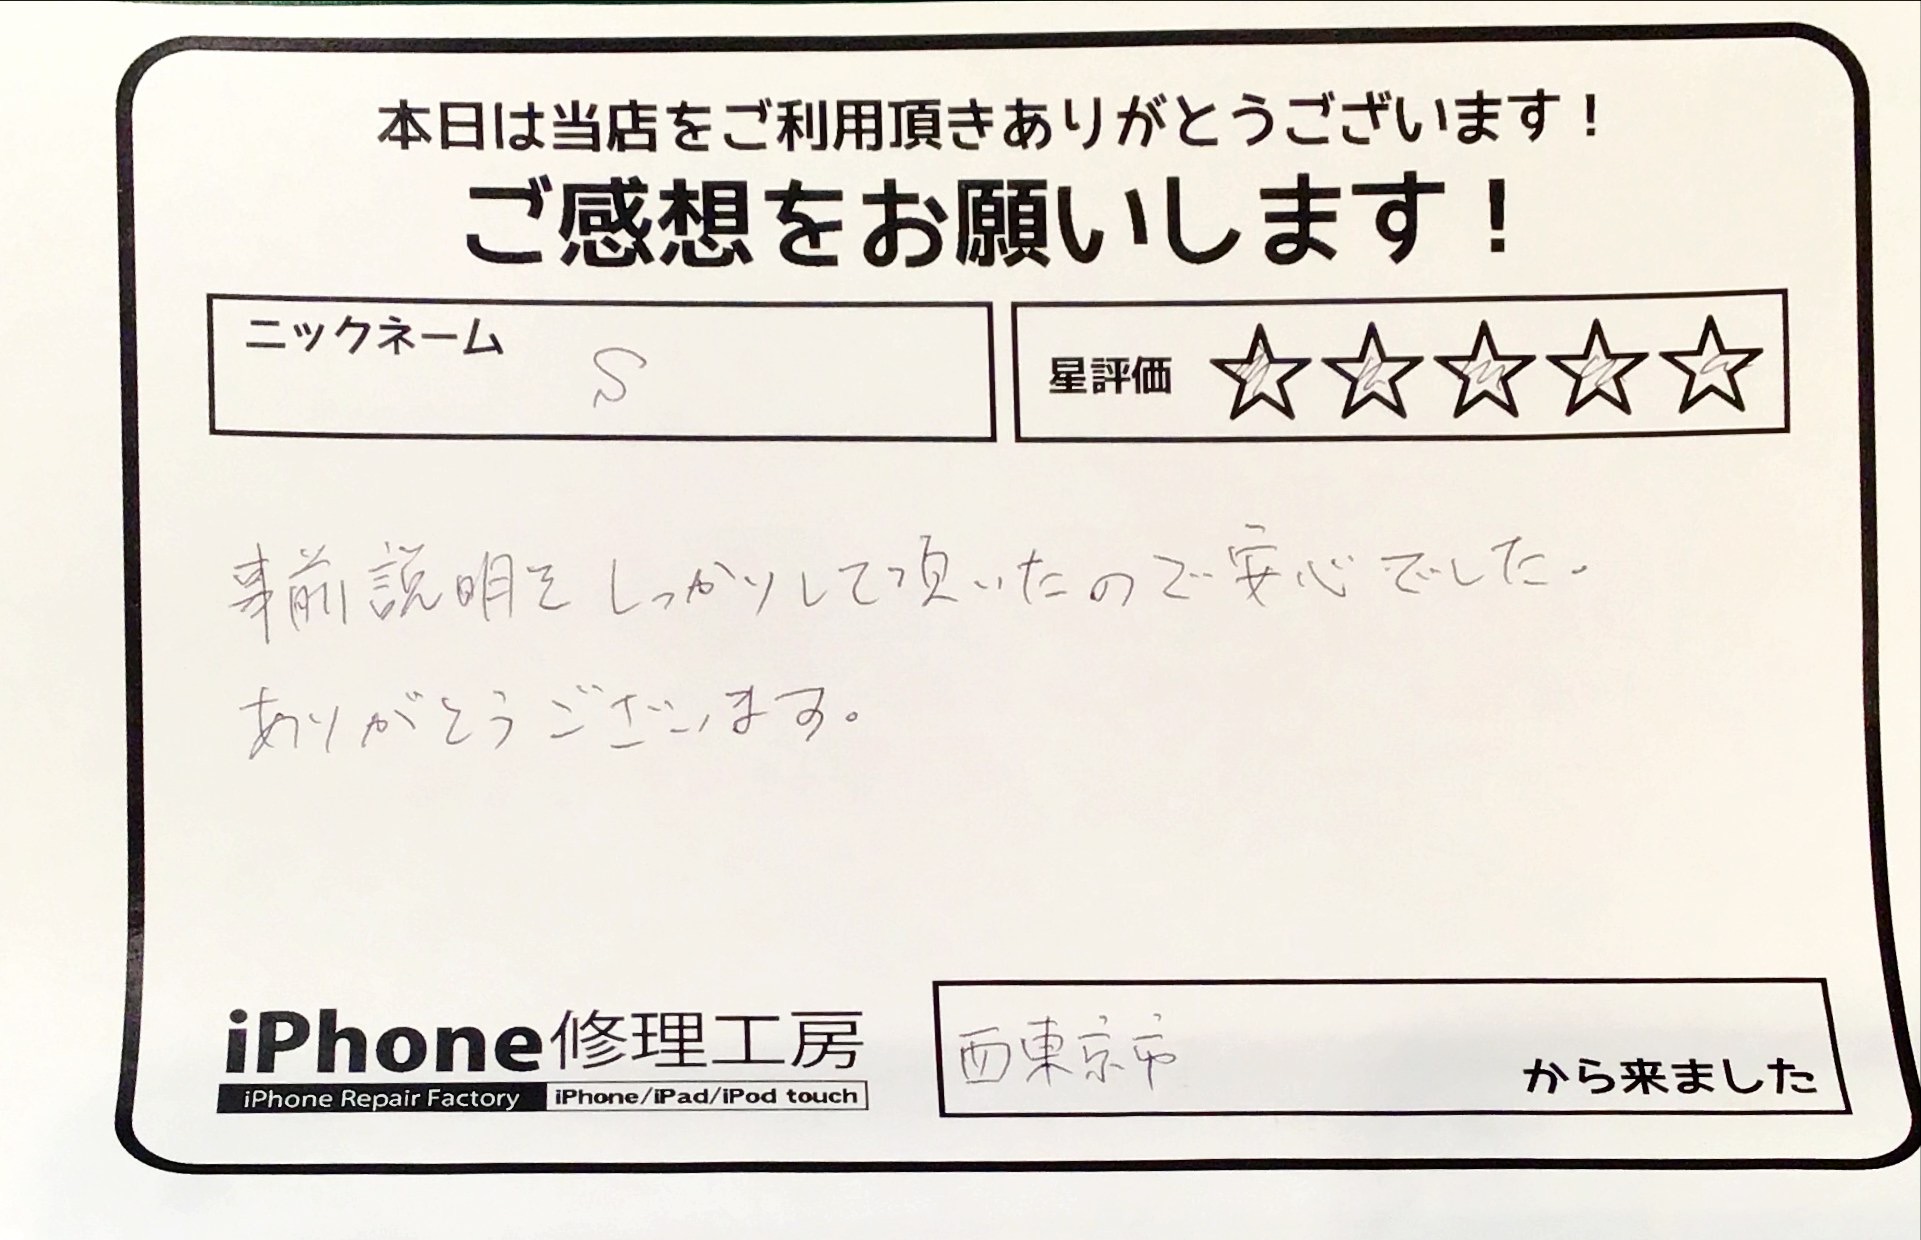 本日は当店をご利用頂きありがとうございます！
ご感想をお願いします！
ニックネーム
S
星評価 ☆☆☆☆☆
事前説明をしっかりして頂いたので安心でした。
ありがとうございます。
iPhone修理工房
iPhone Repair Factory iPhone/iPad/iPod touch
西東京市
から来ました